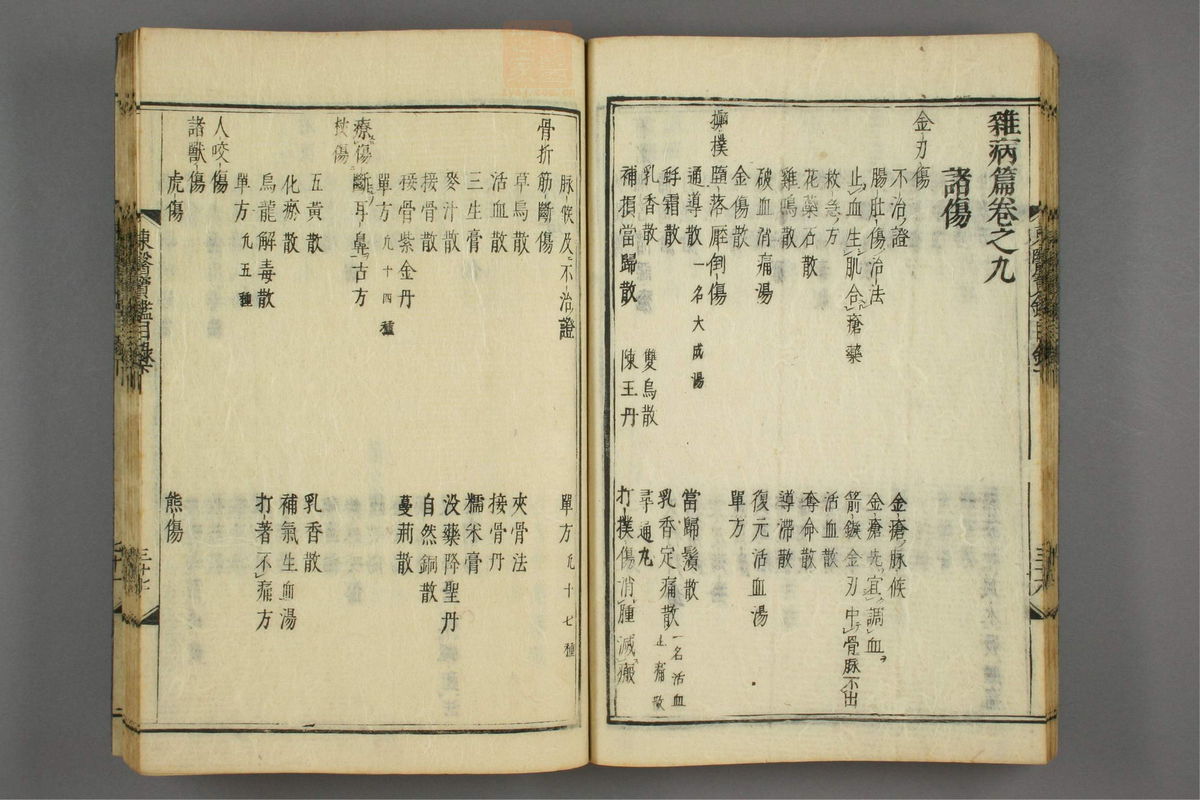 雜病篇卷之九
諸傷
金刃傷
不治證
金瘡脉候
腸肚傷治法
金瘡先宜調血
止血生肌合瘡藥
箭鏃金刃中骨脉不出
救急方
活血散
花藥石散
奪命散
雞鳴散
導滯散
破血消痛湯
復元活血湯
金傷散
單方
攧撲
墮落壓倒傷
通導散 一名大成湯
當歸鬚散
乳香定痛散 一名活血止痛散
乳香散
雙烏散
尋痛丸
補損當歸散
陳王丹
打撲傷消腫滅瘢
脉候及不治證
單方 九十七種
骨折筋斷傷
草烏散
夾骨法
活血散
接骨丹
三生膏
糯米膏
麥汁散
沒藥降聖丹
接骨散
自然銅散
接骨紫金丹
蔓荊散
單方 九十四種
療傷斷耳鼻古方
杖傷
五黃散
乳香散
化瘀散
補氣生血湯
烏龍解毒散
打著不痛方
單方 九五種
人咬傷
諸獸傷
虎傷
熊傷
東醫寶鑑目錄
三十七